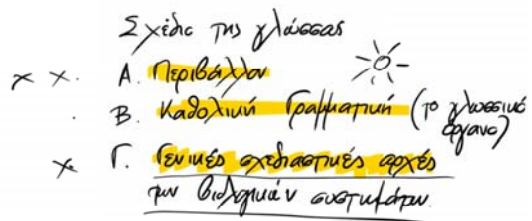 Σχέδιο της γλώσσας
x x. Α. Περιβάλλον
. Β. Καθολική Γραμματική (το γλωσσικό όργανο)
x Γ. Γενικές σχεδιαστικές αρχές
των βιολογικών συστημάτων.